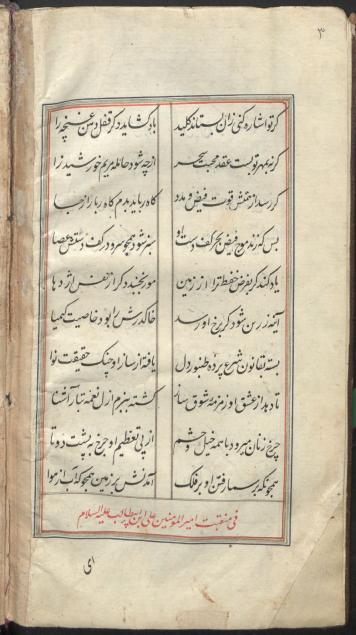 ۳
گر تو اشاره کنی زان بستاند کلید باد گشاید دگر قفل دهن غنچه را
گرنه بمهر تو بست عقد محبت سحر ازچه شود حامله مریم خورشید زا
گر رسد از همتش قوت فیض و مدد کاه رباید بدم کاه ربا را ز جا
بس که زند موج فیض بحر کف دست او سبز شود همچو سرو در کف دستش عصا
یاد کند گر بفرض حفظ ترا از زمین مور نجنبد دگر از نفس اژدها
آینه زر شود گر برخ او رسد خاک درش را بود خاصیت کیمیا
بسته بقانون شرع پرده طنبور دل یافته از ساز او چنگ حقیقت نوا
تا دهد از عشق او زمزمه شوق ساز گشته بنزم ازل نغمه تبار آشنا
چرخ زنان میرود با همه خیل و حشم از پی تعظیم او چرخ به پشت دوتا
همچو که بر سما رفتن او بر فلک آمدنش بر زمین همچو که آب از هوا
فی منقبت امیر المومنین علی ابن ابیطالب علیه السلام
ای